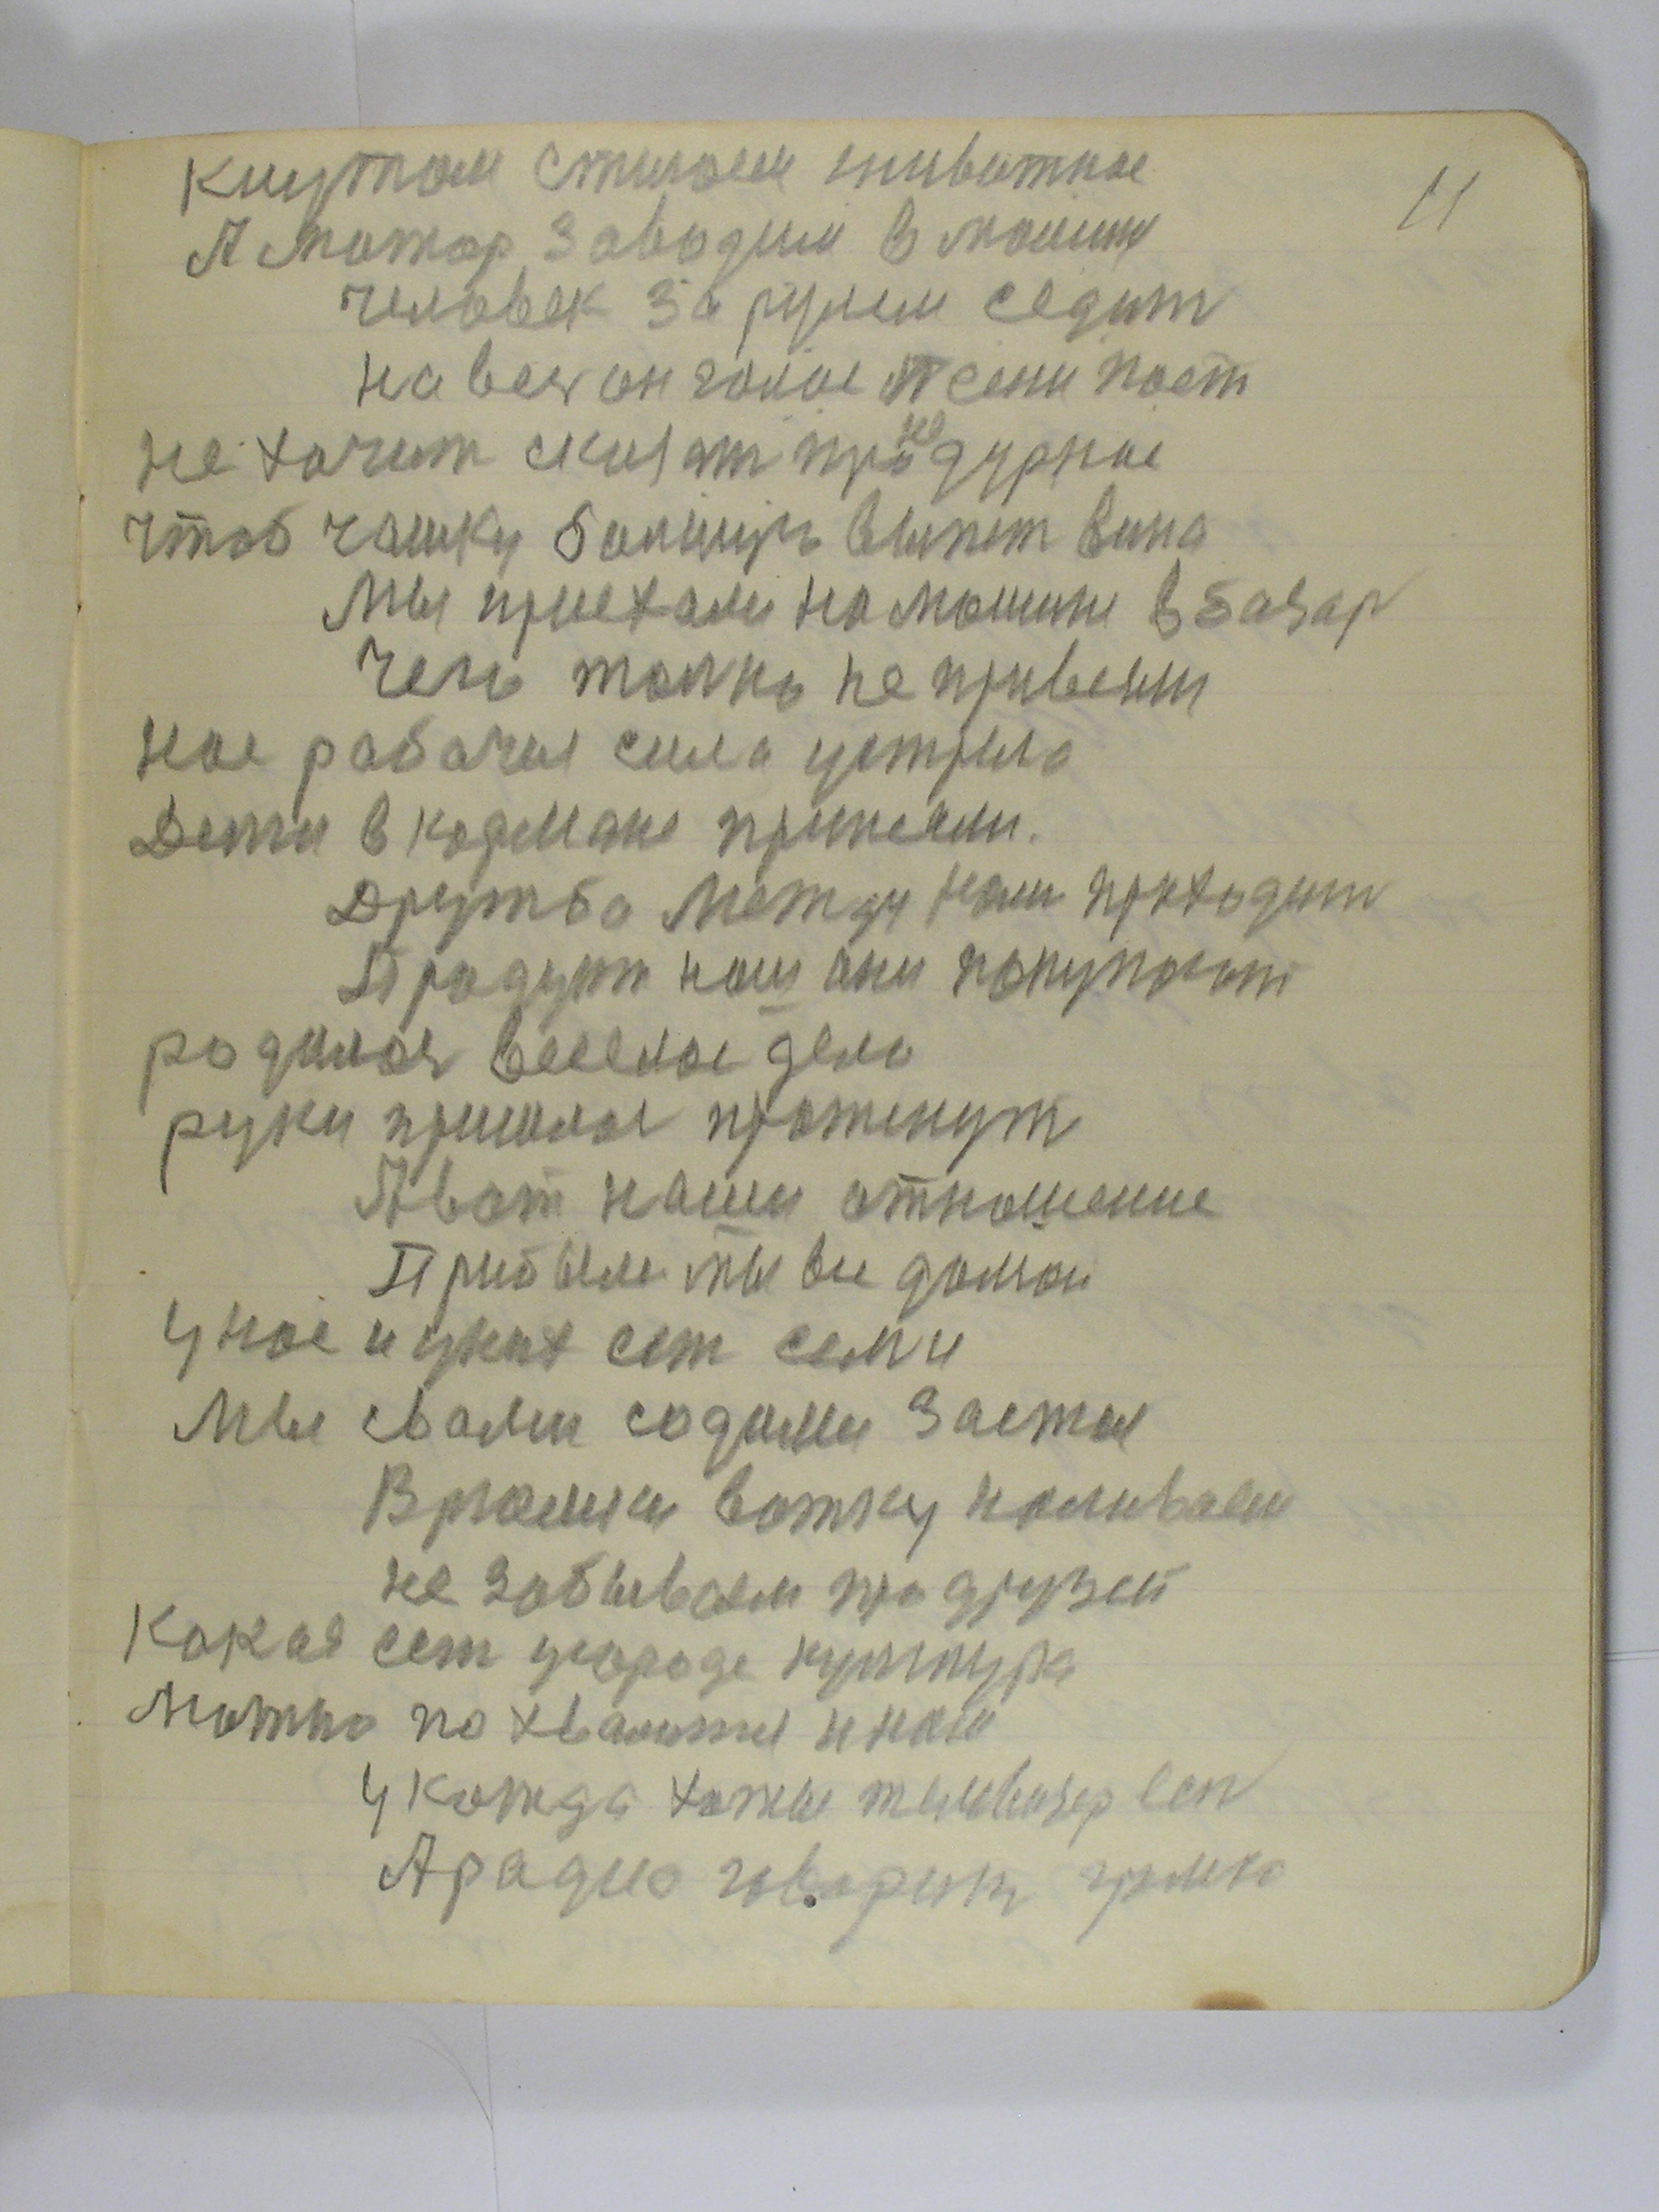 11
Кнутом стигаем животное
А мотор заводим в машине
человек за рулем седит
на весь он голос песни поет
не хочит сказат про не дурное
чтоб чашку большую выпет вина
Мы приехали на машине в базар
Чего толко не привезли
нас рабочая сила устрела
Дети в кармане принесли.
Дружба между нами приходит
Продукт наш они покупают
родилос веселое дело
руки пришлос протенут
А вот наши отношение
Прибыли мы все домой
У нас и у них ест семи
Мы с вами содимся за стол
В рюмки вотку наливаем
не забываем про друзей
Какая ест у городе культура
Можно похвалится и нам
У кожда хоты телевизер ест
А радио говорит громко